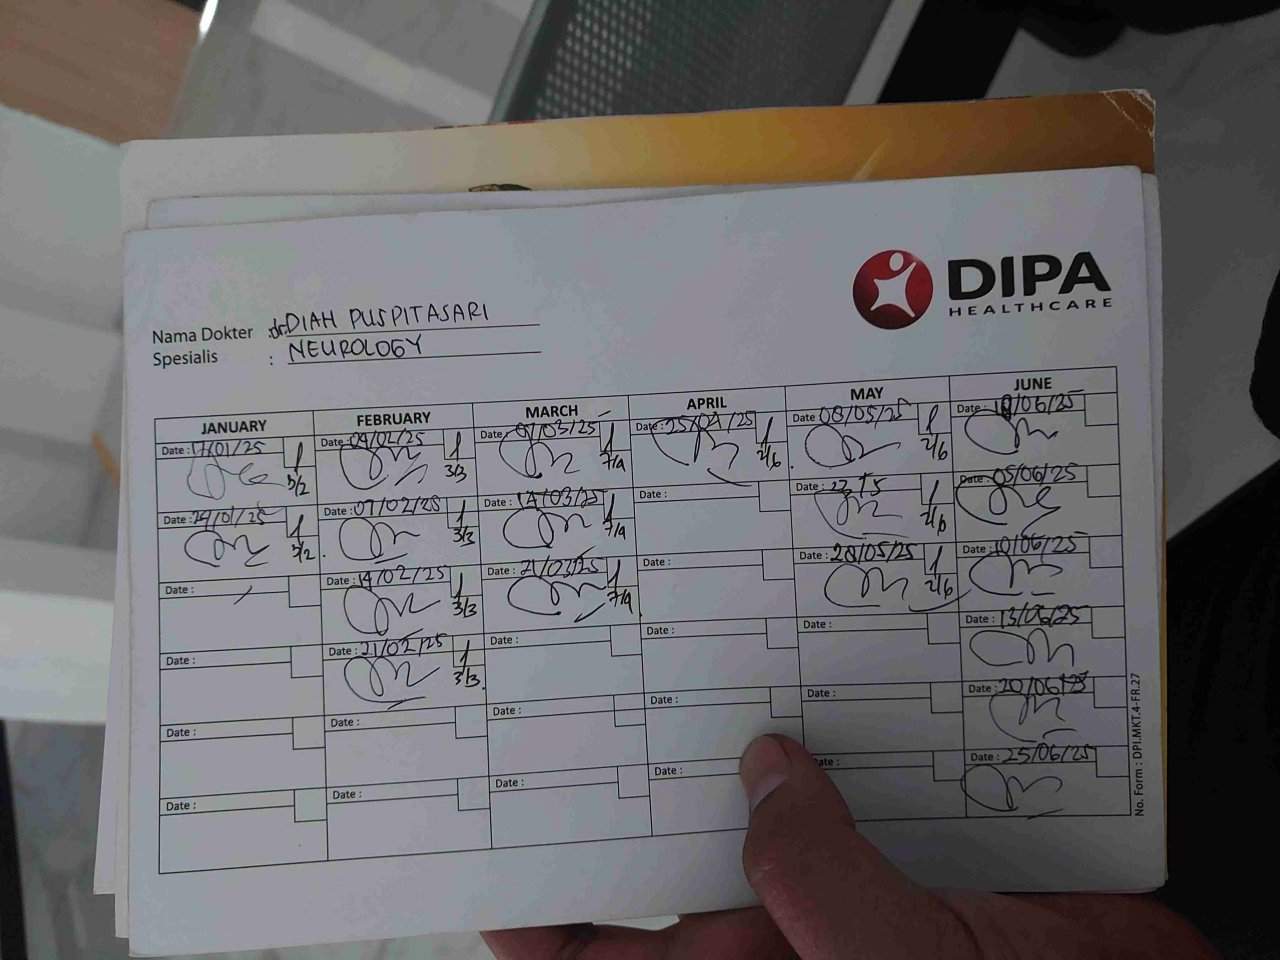 DIPA
HEALTHCARE
Nama Dokter : dr. DIAH PUSPITASARI
Spesialis : NEUROLOGY
JANUARY FEBRUARY MARCH APRIL MAY JUNE
Date : 17/01/25 3/2 Date : 04/02/25 3/3 Date : 07/03/25 7/4 Date : 25/04/25 2/6 Date : 08/05/25 2/6 Date : /06/25
Date : 24/01/25 3/2 Date : 07/02/25 3/3 Date : 14/03/25 7/4 Date : Date : 2/6 Date : 05/06/25
Date : Date : 14/02/25 3/3 Date : 21/03/25 7/4 Date : Date : 28/05/25 2/6 Date : 10/06/25
Date : Date : 21/02/25 3/3 Date : Date : Date : Date : 13/06/25
Date : Date : Date : Date : Date : Date : 20/06/25
Date : Date : Date : Date : Date : Date : 25/06/25
No. Form : DPI.MKT.4-FR.27